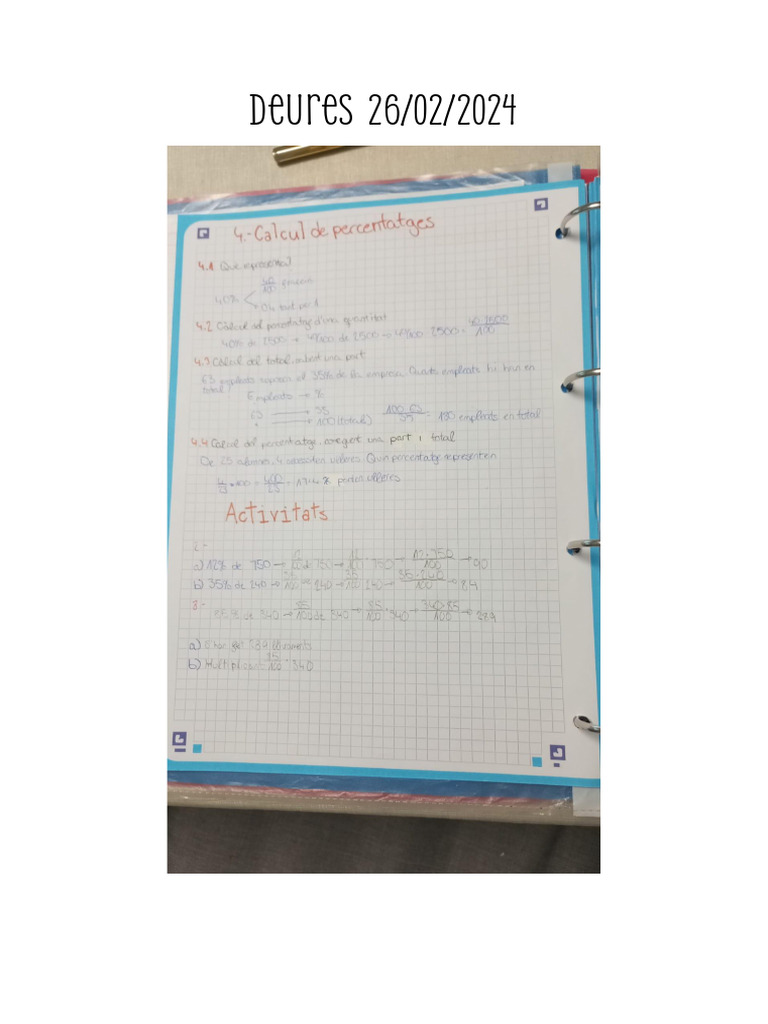 Deures 26/02/2024
4.-Calcul de percentatges
4.1 Que representa
40/100
40%
0'4 tant per 1
4.2 Càlcul del percentatge d'una quantitat
40% de 2500 → 40/100 de 2500 → 40/100 · 2500 = 40·2500/100
4.3 Càlcul del total, sabent una part
63 empleats 35% de la empresa. Quants empleats hi han en
total
Empleats → %
63 → 35
→ 100 (total) 100·63/35 = 180 empleats en total
4.4 Calcul del percentatge, una part i total
De 23 alumnes, 4 ulleres. Quin percentatge representen
4/23 · 100 = 400/23 = % porten ulleres
Activitats
2.-
a) 12% de 750 → de 750 → 12/100 · 750 → 12·750/100 → 90
b) 35% de 240 → 35/100 de 240 → 35/100 · 240 → 35·240/100 → 84
8.-
85% de 340 → 85/100 de 340 → 85/100 · 340 → 340·85/100 → 289
a) 289
b) Multiplicant 85/100 · 340